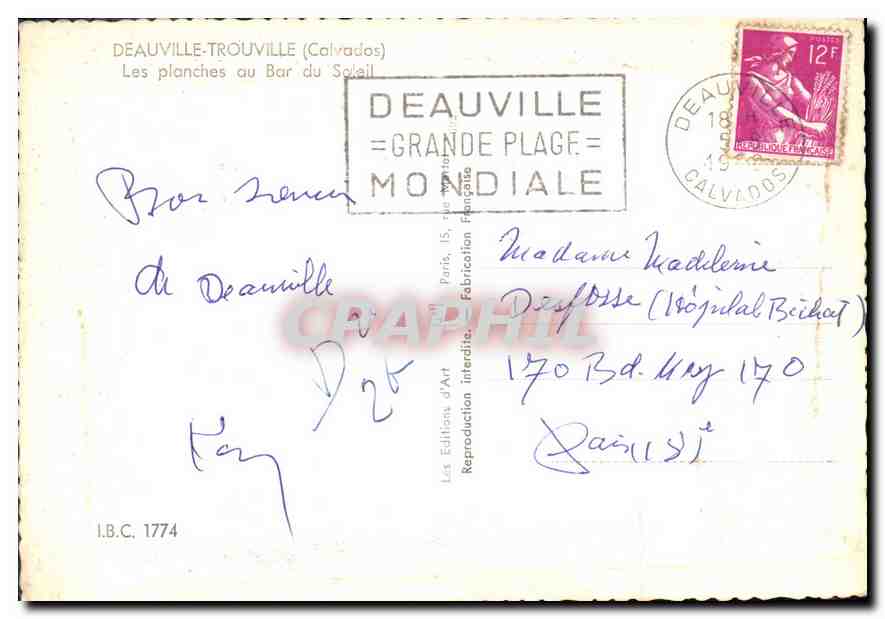 DEAUVILLE-TROUVILLE (Calvados)
Les planches au Bar du Soleil
DEAUVILLE
=GRANDE PLAGE=
MONDIALE
POSTES
12F
REPUBLIQUE FRANÇAISE
DEAUVILLE
18 H
19
CALVADOS
Bon
de Deauville
Madame Madeleine
Desfosse (Hôpital Bichat)
170 Bd. Ney 170
Paris (18)e
CPAPHIL
Les Editions d'Art
Paris, 15, rue
Reproduction interdite. Fabrication Française
I.B.C. 1774